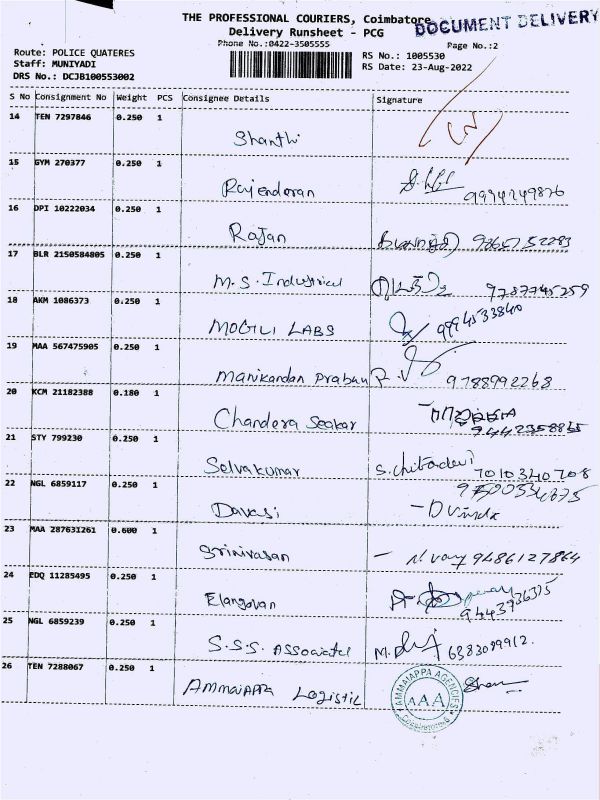 THE PROFESSIONAL COURIERS, Coimbatore
DOCUMENT DELIVERY
Delivery Runsheet - PCG
Phone No.:0422-3505555
Page No.:2
Route: POLICE QUATERES
RS No.: 1005530
Staff: MUNIYADI
RS Date: 23-Aug-2022
DRS No.: DCJB100553002
S No Consignment No Weight PCS Consignee Details Signature
14 TEN 7297846 0.250 1
Shanthi
15 GYM 270377 0.250 1
Rajendoran 9994249876
16 DPI 10222034 0.250 1
Rajan
17 BLR 2150584805 0.250 1
M.S. Industrial 9787745259
18 AKM 1086373 0.250 1
MOGILI LABS 9994533840
19 MAA 567475905 0.250 1
Manikandan Prabau R.V 9788992268
20 KCM 21182388 0.180 1
Chandera Seakar 9442358865
21 STY 799230 0.250 1
Selvakumar S.Chitradevi 7010340708
22 NGL 6859117 0.250 1
Davasi
23 MAA 287631261 0.600 1
Srinivasan 9486127864
24 EDQ 11285495 0.250 1
Elangovan 9443736375
25 NGL 6859239 0.250 1
S.S.S. Associatel 6383099912.
26 TEN 7288067 0.250 1
AMMAIAPPA Logistil
AMMAIAPPA AGENCIES
AAA
Coimbatore-6
DOCUMENT DELIVERY